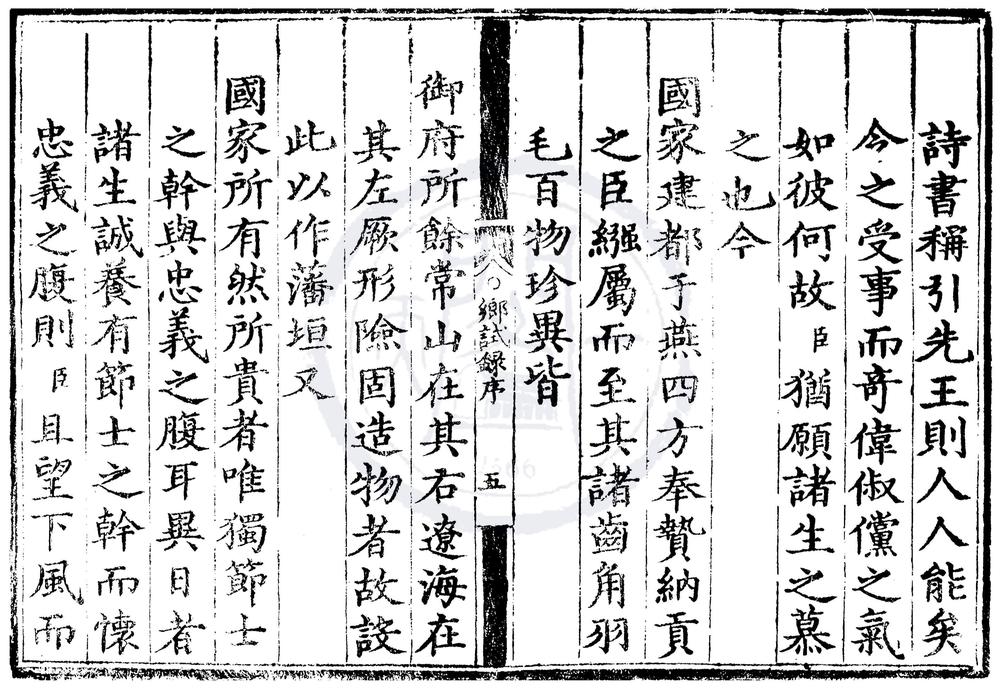 詩書稱引先王則人人能矣
今之受事而竒偉俶儻之氣
如彼何故臣猶願諸生之慕
之也今
國家建都于燕四方奉贄納貢
之臣繦屬而至其諸齒角羽
毛百物珍異皆
鄉試録序
五
御府所餘常山在其右遼海在
其左厥形險固造物者故設
此以作藩垣又
國家所有然所貴者唯獨節士
之幹與忠義之腹耳異日者
諸生誠養有節士之幹而懷
忠義之腹則臣且望下風而